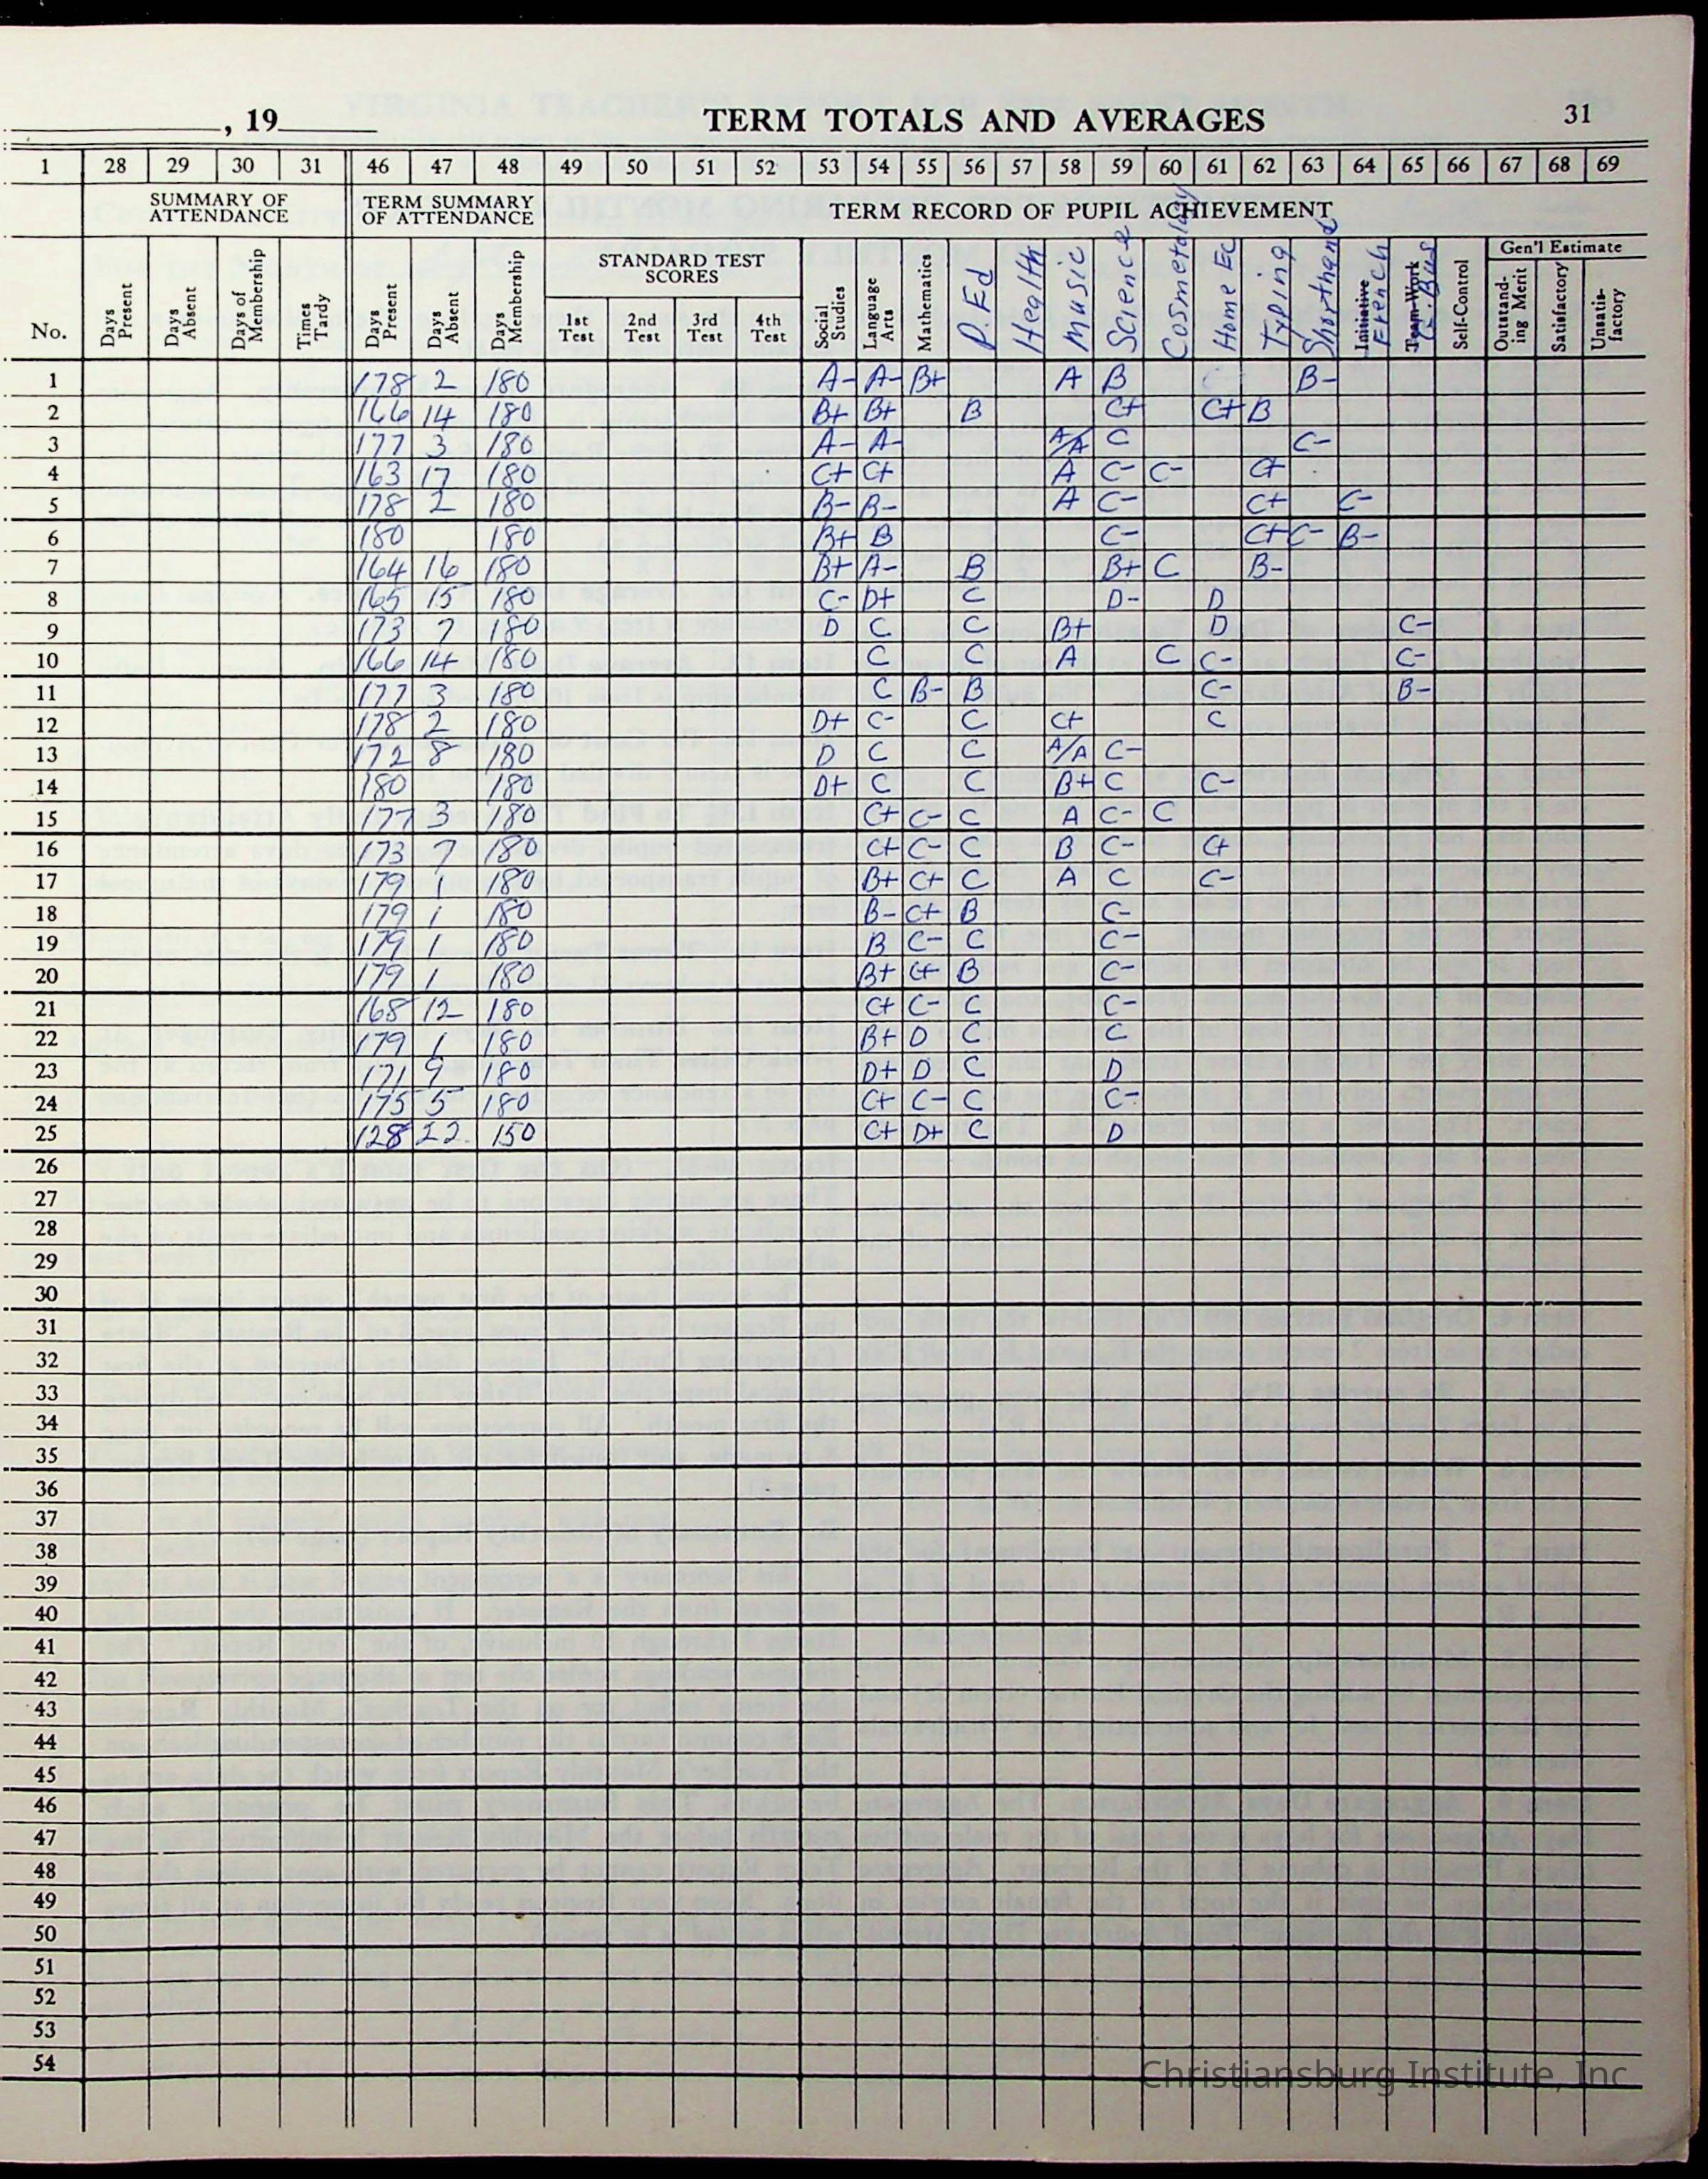 , 19 TERM TOTALS AND AVERAGES 31
1 28 29 30 31 46 47 48 49 50 51 52 53 54 55 56 57 58 59 60 61 62 63 64 65 66 67 68 69
SUMMARY OF ATTENDANCE TERM SUMMARY OF ATTENDANCE TERM RECORD OF PUPIL ACHIEVEMENT
STANDARD TEST SCORES Gen'l Estimate
No. Days Present Days Absent Days of Membership Times Tardy Days Present Days Absent Days Membership 1st Test 2nd Test 3rd Test 4th Test Social Studies Language Arts Mathematics P. Ed Health Music Science Cosmetology Home Ec Typing Shorthand Initiative French Team-Work G. Bus Self-Control Outstanding Merit Satisfactory Unsatisfactory
1 178 2 180 A- A- B+ A B B-
2 166 14 180 B+ B+ B C+ C+ B
3 177 3 180 A- A- A/A C C-
4 163 17 180 C+ C+ A C- C- C+
5 178 2 180 B- B- A C- C+ C-
6 180 180 B+ B C- C+ C- B-
7 164 16 180 B+ A- B B+ C B-
8 165 15 180 C- D+ C D- D
9 173 7 180 D C C B+ D C-
10 166 14 180 C C A C C- C-
11 177 3 180 C B- B C- B-
12 178 2 180 D+ C- C C+ C
13 172 8 180 D C C A/A C-
14 180 180 D+ C C B+ C C-
15 177 3 180 C+ C- C A C- C
16 173 7 180 C+ C- C B C- C+
17 179 1 180 B+ C+ C A C C-
18 179 1 180 B- C+ B C-
19 179 1 180 B C- C C-
20 179 1 180 B+ C+ B C-
21 168 12 180 C+ C- C C-
22 179 1 180 B+ D C C
23 171 9 180 D+ D C D
24 175 5 180 C+ C- C C-
25 128 22 150 C+ D+ C D
26
27
28
29
30
31
32
33
34
35
36
37
38
39
40
41
42
43
44
45
46
47
48
49
50
51
52
53
54
Christiansburg Institute, Inc